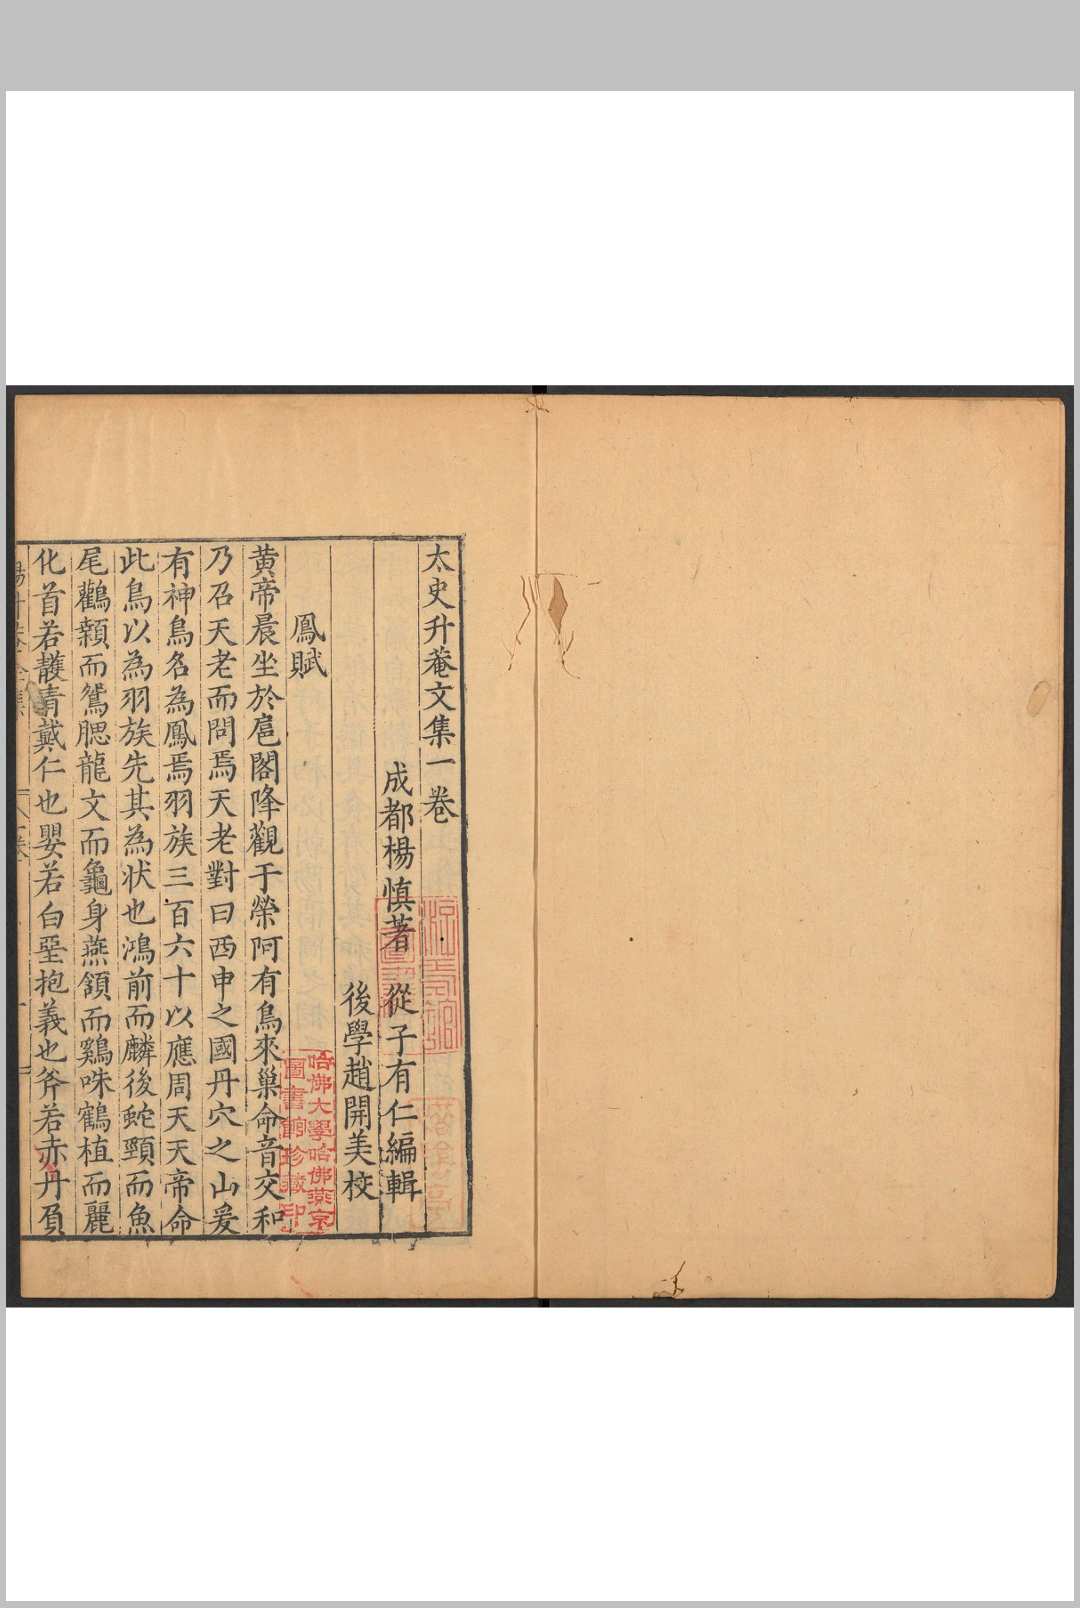 太史升菴文集一卷
成都楊慎著 從子有仁編輯
後學趙開美校
鳳賦
黃帝晨坐於扈閣降觀于榮阿有鳥來巢命音交和
乃召天老而問焉天老對曰西申之國丹穴之山爰
有神鳥名為鳳焉羽族三百六十以應周天天帝命
此鳥以為羽族先其為状也鴻前而麟後蛇頸而魚
尾鸛顙而鴛腮龍文而龜身燕頷而鷄咮鶴植而麗
化首若䨼青戴仁也嬰若白堊抱義也斧若赤丹負
哈佛大學哈佛燕京
圖書館珍藏印